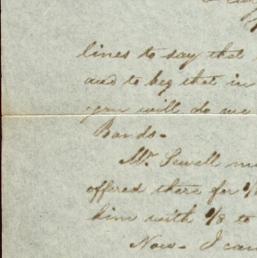 lines to say that
and to beg that in
you will do me
Bands-
Mr. Sewell
offered there for
him with 9/3 to
Now- I can